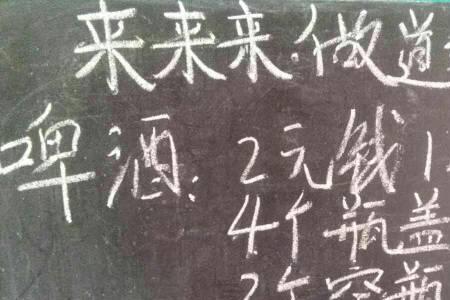 来来来.做道
啤酒:2元钱1
4个瓶盖
2个空瓶